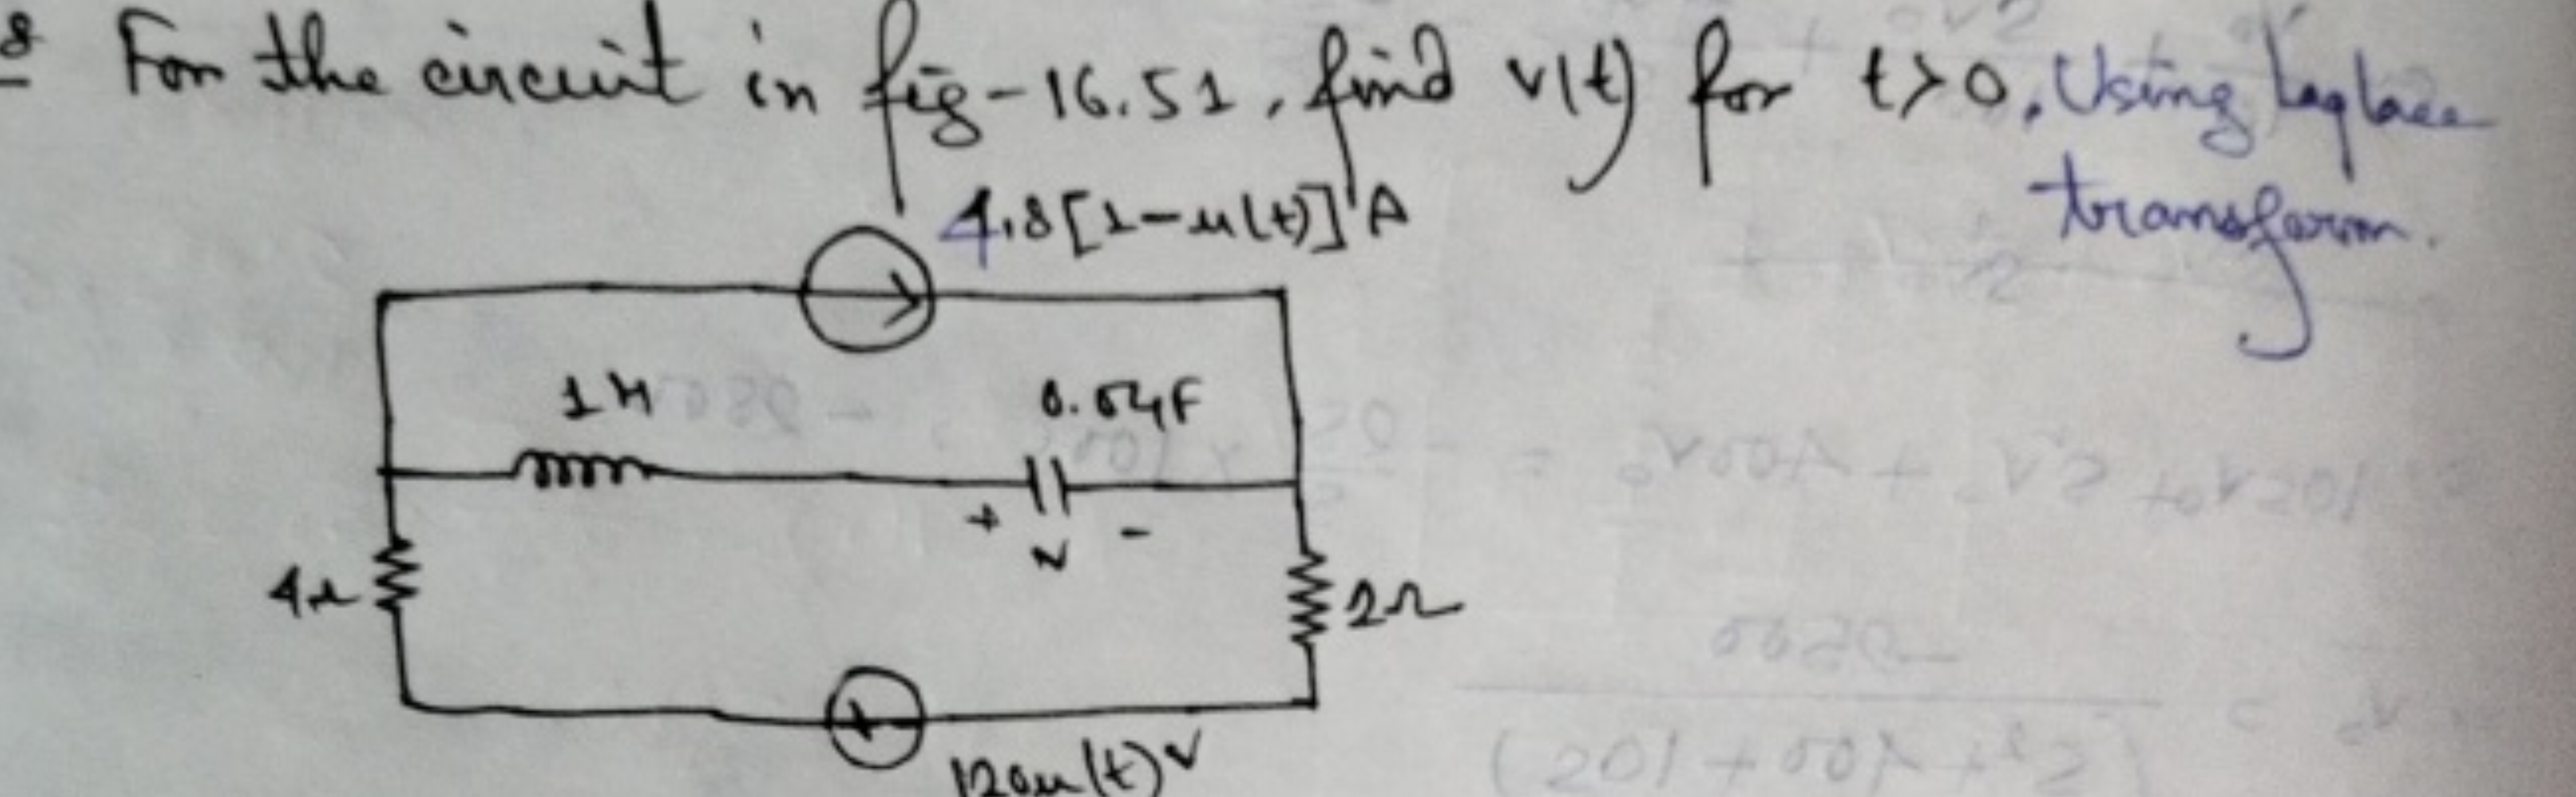 8 For the circuit in fig-16.51, find v(t) for t>0. Using Laplace
transform.
4.8[1-u(t)] A
1H 0.04F
+ v -
4Ω 2Ω
+
120u(t) V